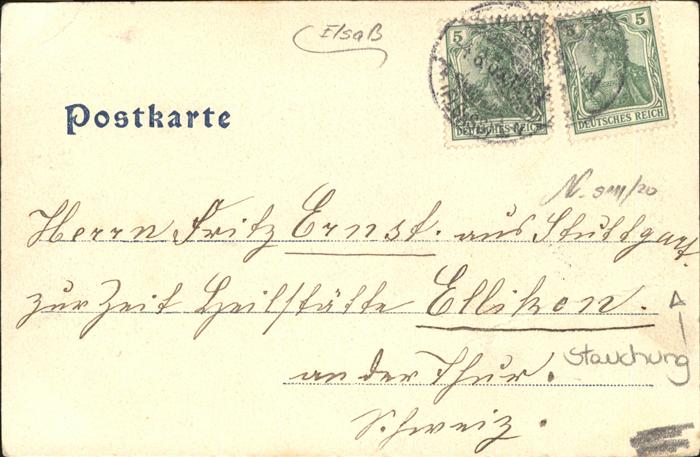 Elsaß
5
5
DEUTSCHES REICH
DEUTSCHES REICH
Postkarte
Herrn Fritz Ernst. aus Stuttgart.
zur Zeit Heilstätte Ellikon.
Stauchung
an der Thur.
Schweiz.